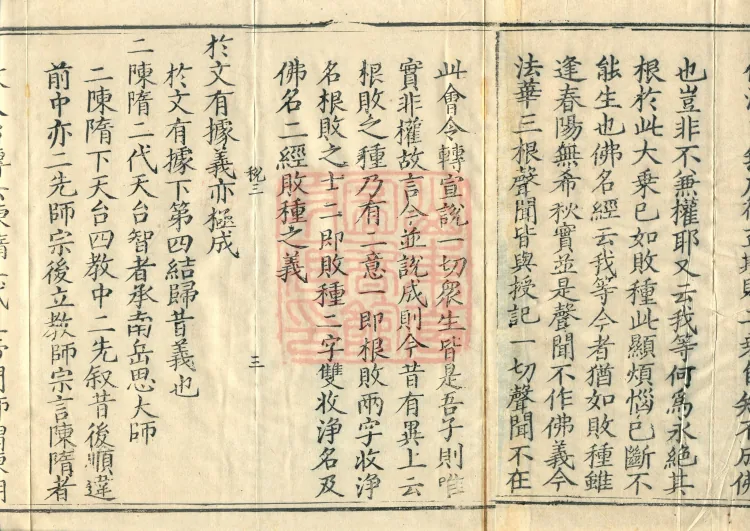 也豈非不兼權耶又云我等何為永絕其
根於此大乗已如敗種此顯煩惱已斷不
能生也佛名經云我等今者猶如敗種雖
逢春陽無希秋實並是聲聞不作佛義今
法華三根聲聞皆與授記一切聲聞不在
此會令轉宣說一切眾生皆是吾子則唯
實非權故言今並說成則今昔有異上云
根敗之種乃有二意一即根敗兩字收淨
名根敗之士二即敗種二字雙收淨名及
佛名二經敗種之義
稅三 三
於文有據義亦極成
於文有據下第四結歸昔義也
二陳隋二代天台智者承南岳思大師
二陳隋下天台四教中二先叙昔後順違
前中亦二先師宗後立教師宗言陳隋者